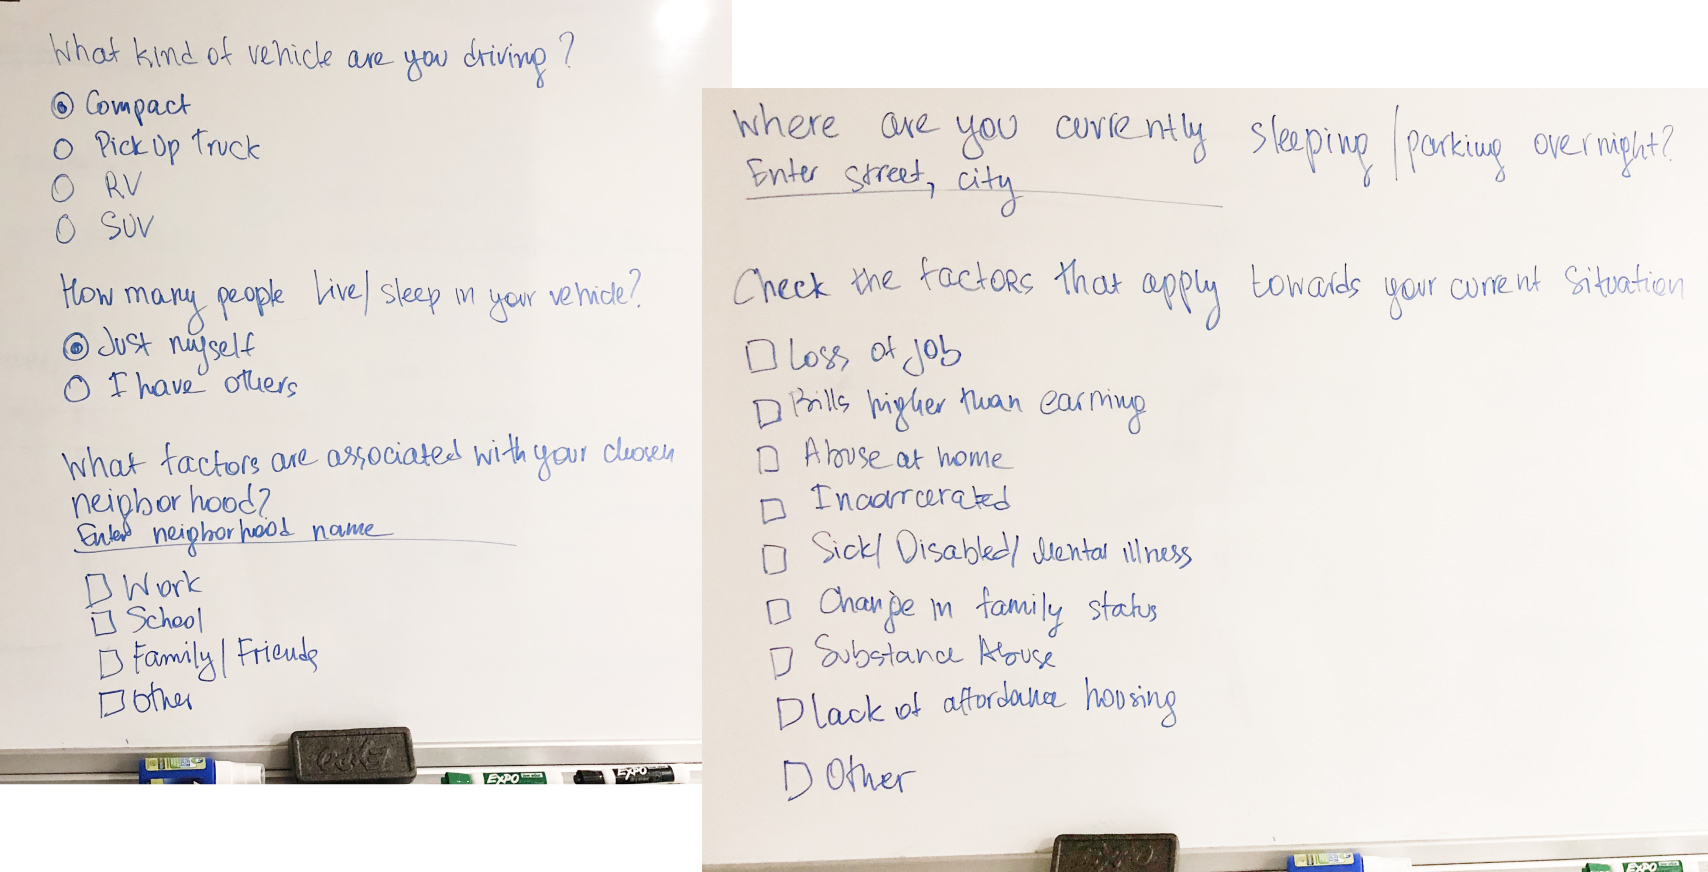 What kind of vehicle are you driving?
Compact
Pick Up Truck
RV
SUV
How many people live/sleep in your vehicle?
Just myself
I have others
What factors are associated with your chosen
neigborhood?
Enter neigborhood name
Work
School
Family/Friends
Other
EXPO
EXPO
Where are you currently sleeping/parking overnight?
Enter street, city
Check the factors that apply towards your current situation
Loss of job
Bills higher than earning
Abuse at home
Incarcerated
Sick/Disabled/Mental illness
Change in family status
Substance Abuse
Lack of affordable housing
Other
expo
EXPO